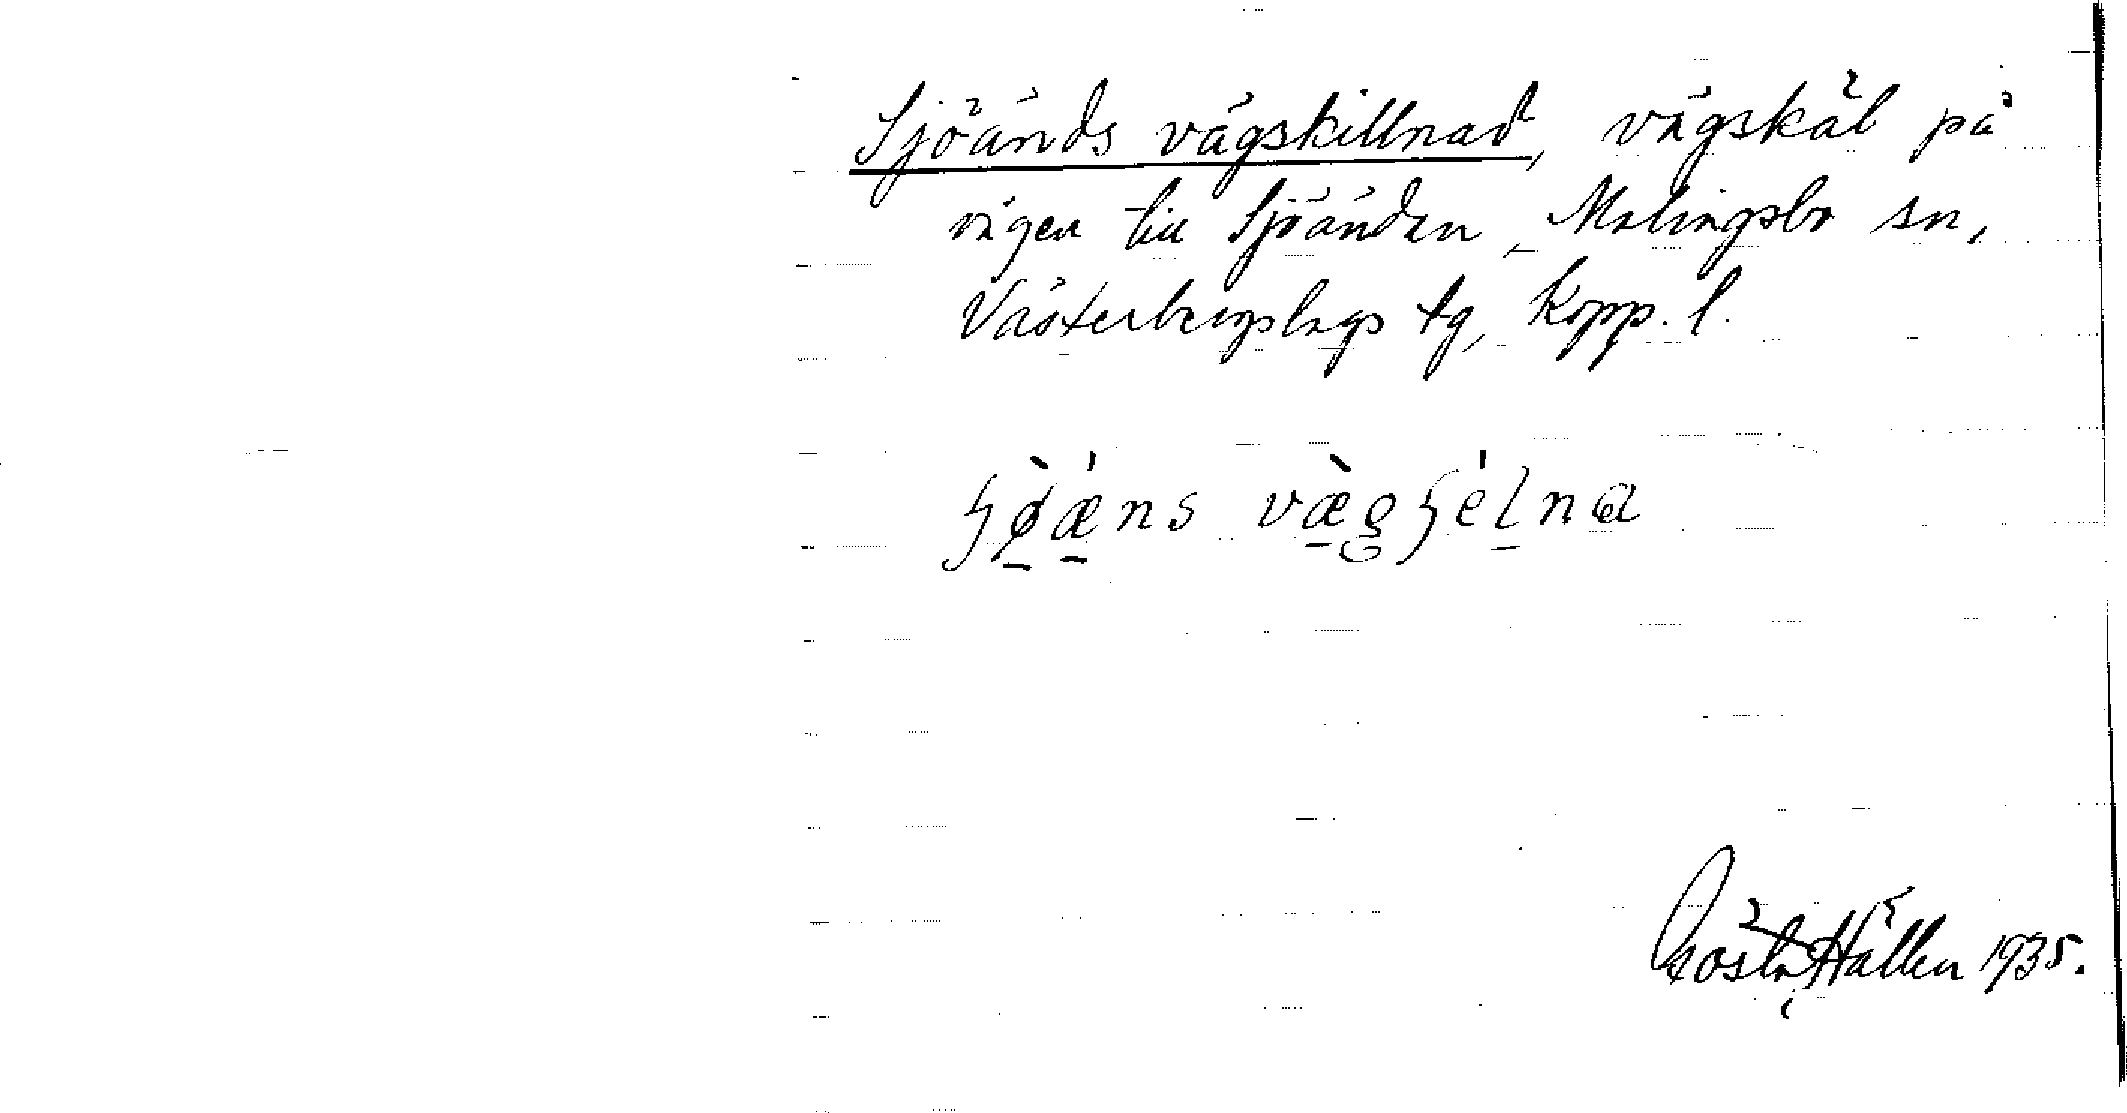 Sjöänds vägskillnad, vägskäl på
vägen till Sjöändan, Malingsbo sn,
Västerbergslags tg, Kopp. l.
ɧø̠̀ǽ̠ns væ̠̀gɧél̠na
Gösta Hällen 1935.